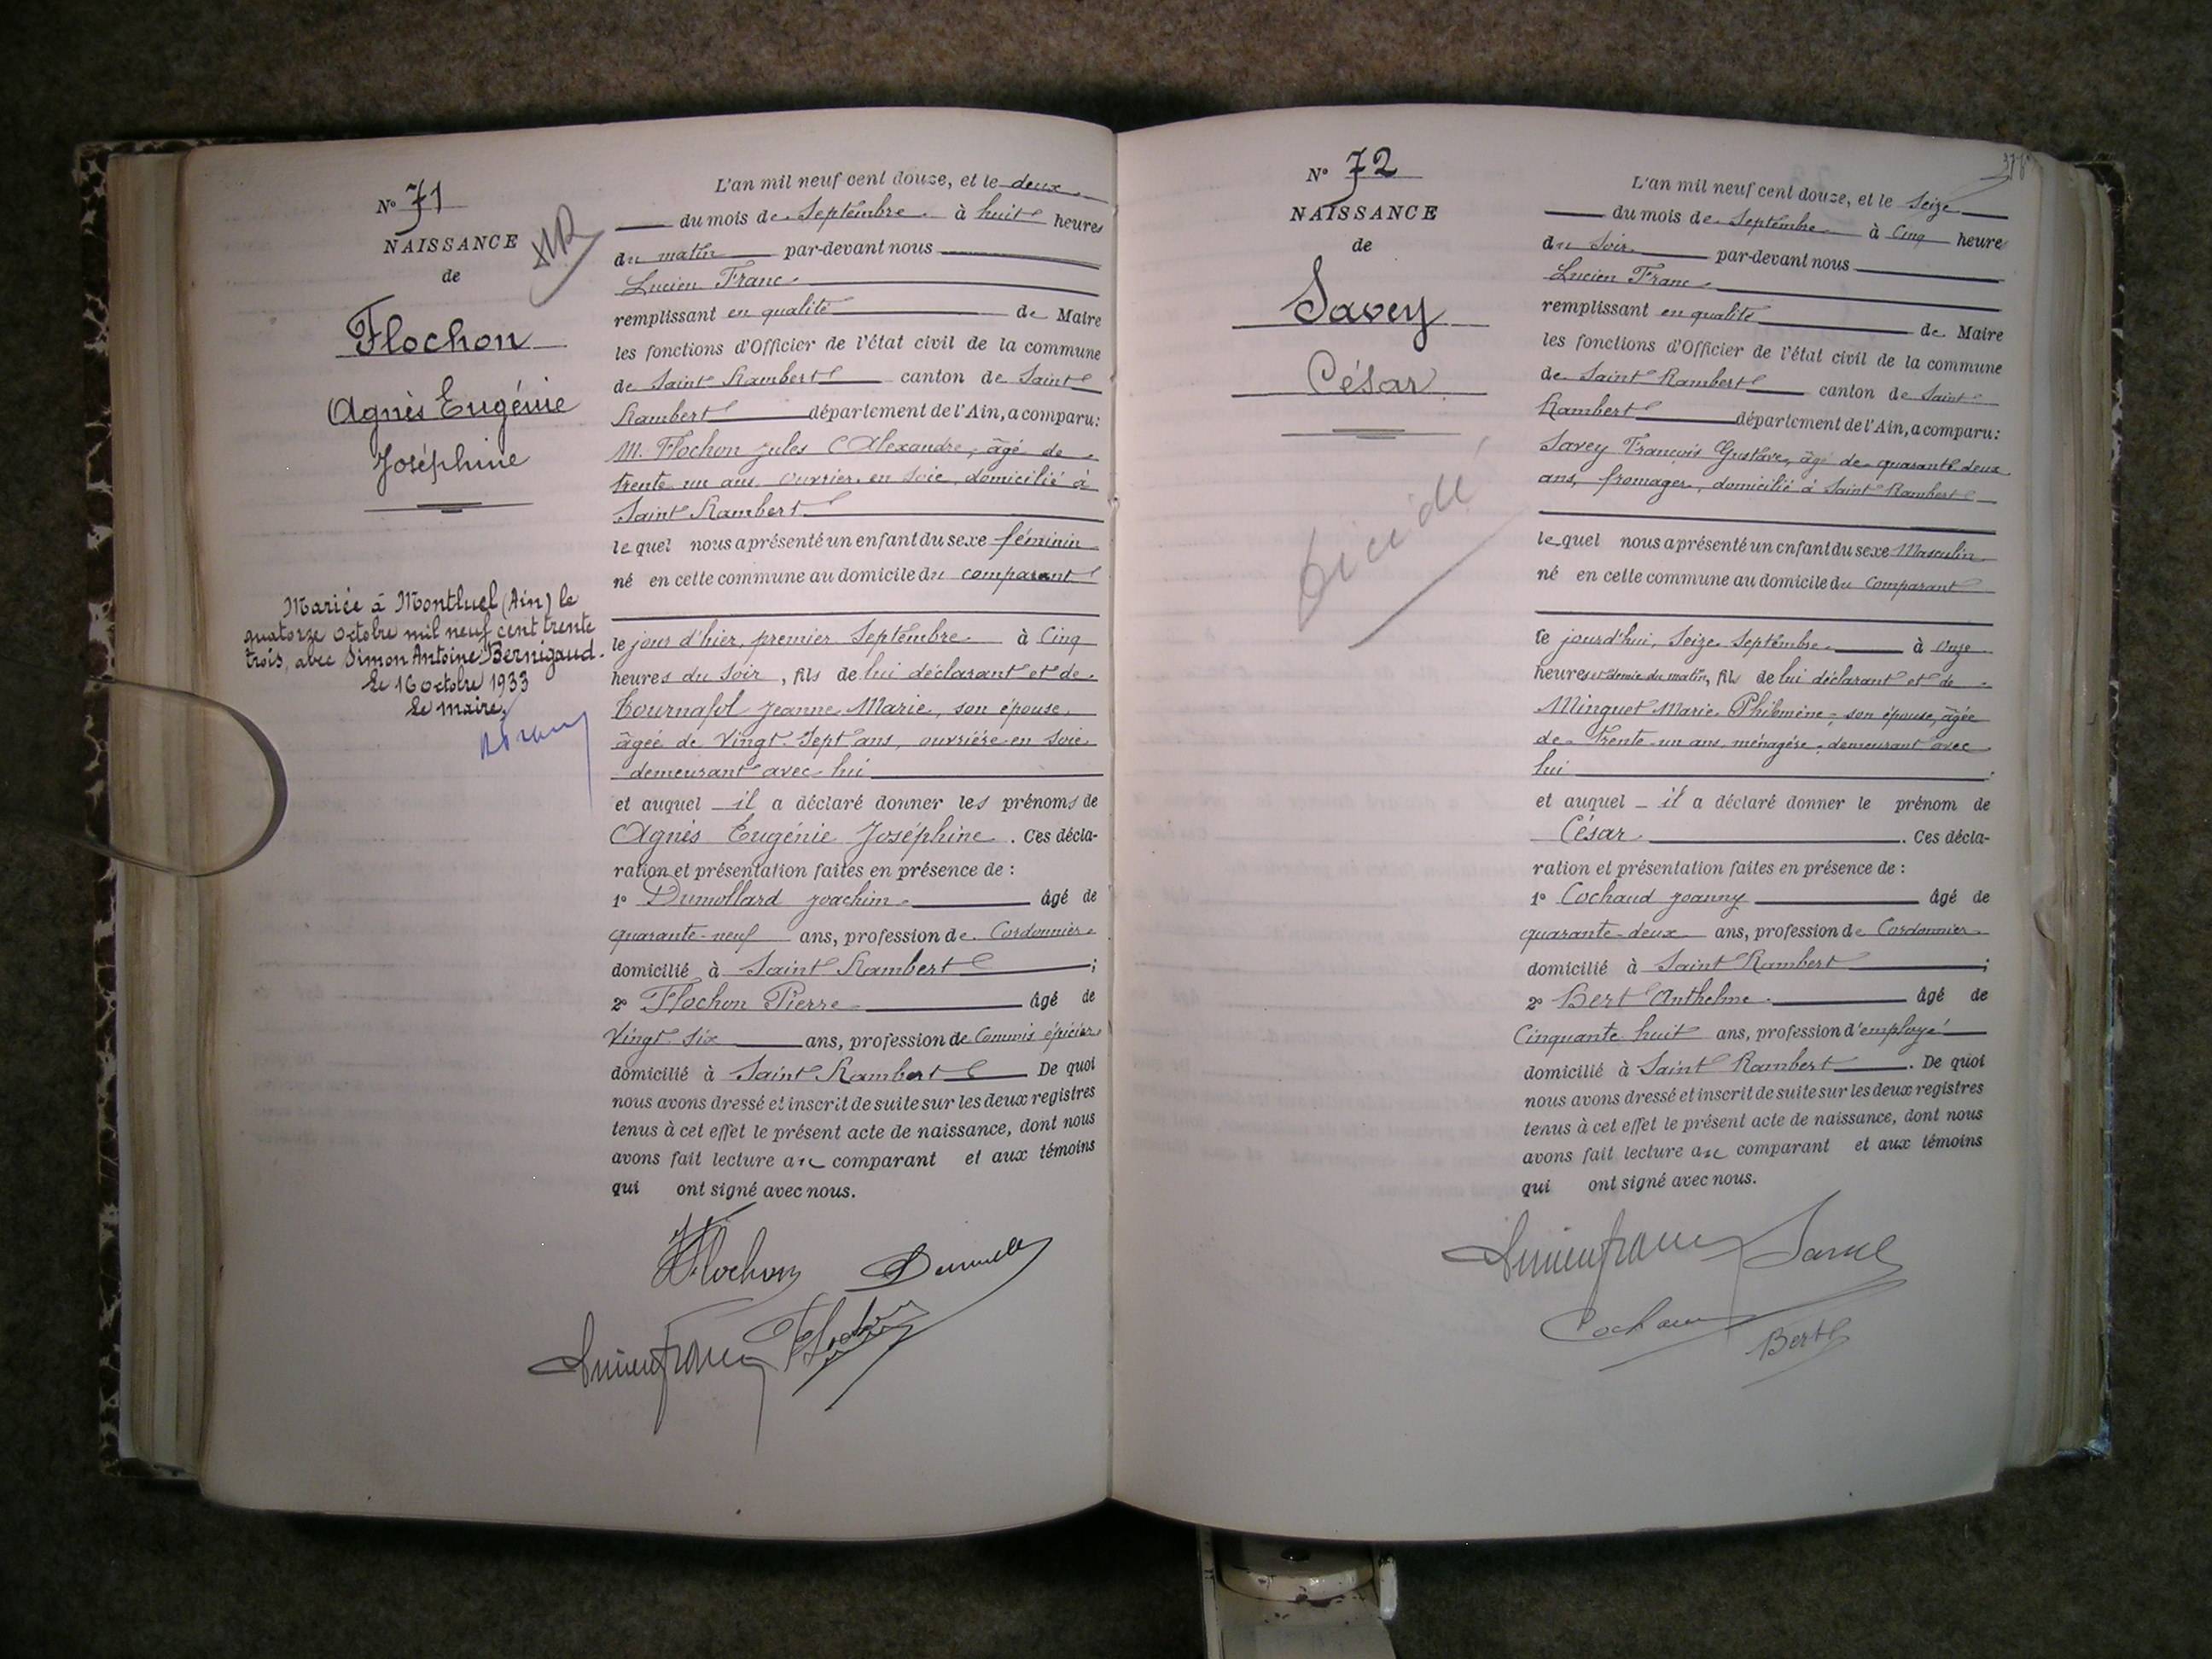 N° 71
NAISSANCE
de
Flochon
Agnès Eugénie
Joséphine
Mariée à Montluel (Ain) le
quatorze octobre mil neuf cent trente
trois, avec Simon Antoine Bernigaud.
Le 16 octobre 1933
Le maire,
L'an mil neuf cent douze, et le deux
du mois de Septembre à huit heures
du matin par-devant nous
Lucien Franc
remplissant en qualité de Maire
les fonctions d'Officier de l'état civil de la commune
de Saint Rambert canton de Saint
Rambert département de l'Ain, a comparu:
M. Flochon Jules Alexandre, âgé de
trente un ans, ouvrier en soie, domicilié à
Saint Rambert
lequel nous a présenté un enfant du sexe féminin
né en cette commune au domicile du comparant
le jour d'hier, premier Septembre à Cinq
heures du soir, fils de lui déclarant et de
Tournafol Jeanne Marie, son épouse,
âgée de Vingt Sept ans, ouvrière en soie
demeurant avec lui
et auquel il a déclaré donner les prénoms de
Agnès Eugénie Joséphine. Ces décla-
ration et présentation faites en présence de :
1° Dumollard Joachim âgé de
quarante-neuf ans, profession de Cordonnier
domicilié à Saint Rambert ;
2° Flochon Pierre âgé de
Vingt Six ans, profession de Commis épicier
domicilié à Saint Rambert De quoi
nous avons dressé et inscrit de suite sur les deux registres
tenus à cet effet le présent acte de naissance, dont nous
avons fait lecture au comparant et aux témoins
qui ont signé avec nous.
Flochon
Lucien Franc Flochon
N° 72
NAISSANCE
de
Savey
César
décidé
L'an mil neuf cent douze, et le Seize
du mois de Septembre à Cinq heure
du Soir par-devant nous
Lucien Franc
remplissant en qualité de Maire
les fonctions d'Officier de l'état civil de la commune
de Saint Rambert canton de Saint
Rambert département de l'Ain, a comparu:
Savey François Gustave, âgé de quarante deux
ans, fromager, domicilié à Saint Rambert
lequel nous a présenté un enfant du sexe Masculin
né en cette commune au domicile du Comparant
le jourd'hui, Seize Septembre à onze
heures et demie du matin, fils de lui déclarant et de
Minguet Marie Philomène, son épouse, âgée
de Trente-un ans, ménagère, demeurant avec
lui
et auquel il a déclaré donner le prénom de
César . Ces décla-
ration et présentation faites en présence de :
1° Cochaud Joanny âgé de
quarante-deux ans, profession de Cordonnier
domicilié à Saint Rambert ;
2° Bert Anthelme âgé de
Cinquante huit ans, profession d'employé
domicilié à Saint Rambert . De quoi
nous avons dressé et inscrit de suite sur les deux registres
tenus à cet effet le présent acte de naissance, dont nous
avons fait lecture au comparant et aux témoins
qui ont signé avec nous.
Lucien Franc
Bert